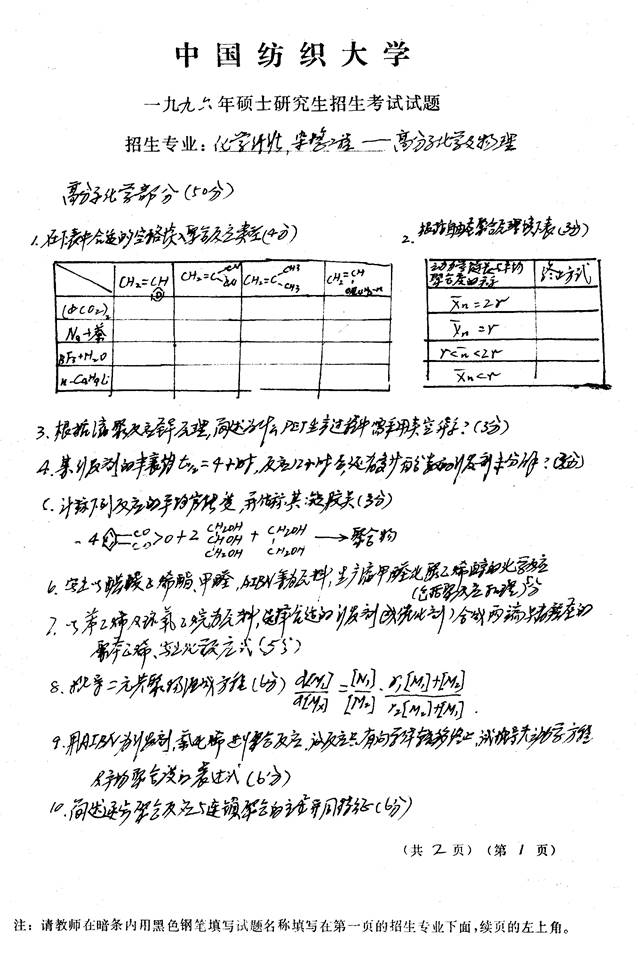 中国纺织大学
一九九六年硕士研究生招生考试试题
招生专业：化学纤维,染整工程——高分子化学及物理
高分子化学部分(50分)
1.在下表中合适的空格填入聚合反应类型(4分)
2.根据自由基聚合原理填下表(3分)
CH₂=CH CH₂=C CH₂=C CH₃ CH₃ CH₂=CH
(φCO₂)₂
Na+萘
BF₃+H₂O
n-C₄H₉Li
动力学链长与平均聚合度的关系 终止方式
X̄n=2r
X̄n=r
r<n̄<2r
X̄n<r
3.根据缩聚反应平衡原理,简述为什么PET生产过程中需采用真空 ?(3分)
4.某引发剂的半衰期t₁/₂=4小时,反应12小时后还有多少百分数的引发剂未分解?(3分)
5.计算下列反应的平均官能度,并估计其凝胶点(3分)
4 CO CO >O+2 CH₂OH CHOH CH₂OH + CH₂OH CH₂OH → 聚合物
6.写出以醋酸乙烯酯、甲醛,AIBN等为原料,生产 甲醛化聚乙烯醇的化学反应
(包括聚合反应机理)5分
7.以苯乙烯及环氧乙烷为原料,选择合适的引发剂(或催化剂)合成两端 的
聚苯乙烯,写出化学反应式(5分)
8.推导二元共聚物组成方程(6分) d[M₁]/d[M₂]=[M₁]/[M₂]·r₁[M₁]+[M₂]/r₂[M₂]+[M₁].
9.用AIBN为引发剂,氯乙烯进行聚合反应,该反应只有向单体转移终止,试推导其动力学方程
及平均聚合度的表达式(6分)
10.简述逐步聚合反应与连锁聚合的主要不同特征(6分)
(共 2 页) (第 1 页)
注：请教师在暗条内用黑色钢笔填写试题名称填写在第一页的招生专业下面,续页的左上角。